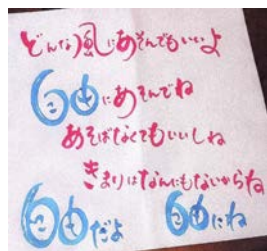 どんな風にあそんでもいいよ
自由にあそんでね
あそばなくてもいいしね
きまりはなんにもないからね
自由だよ 自由にね